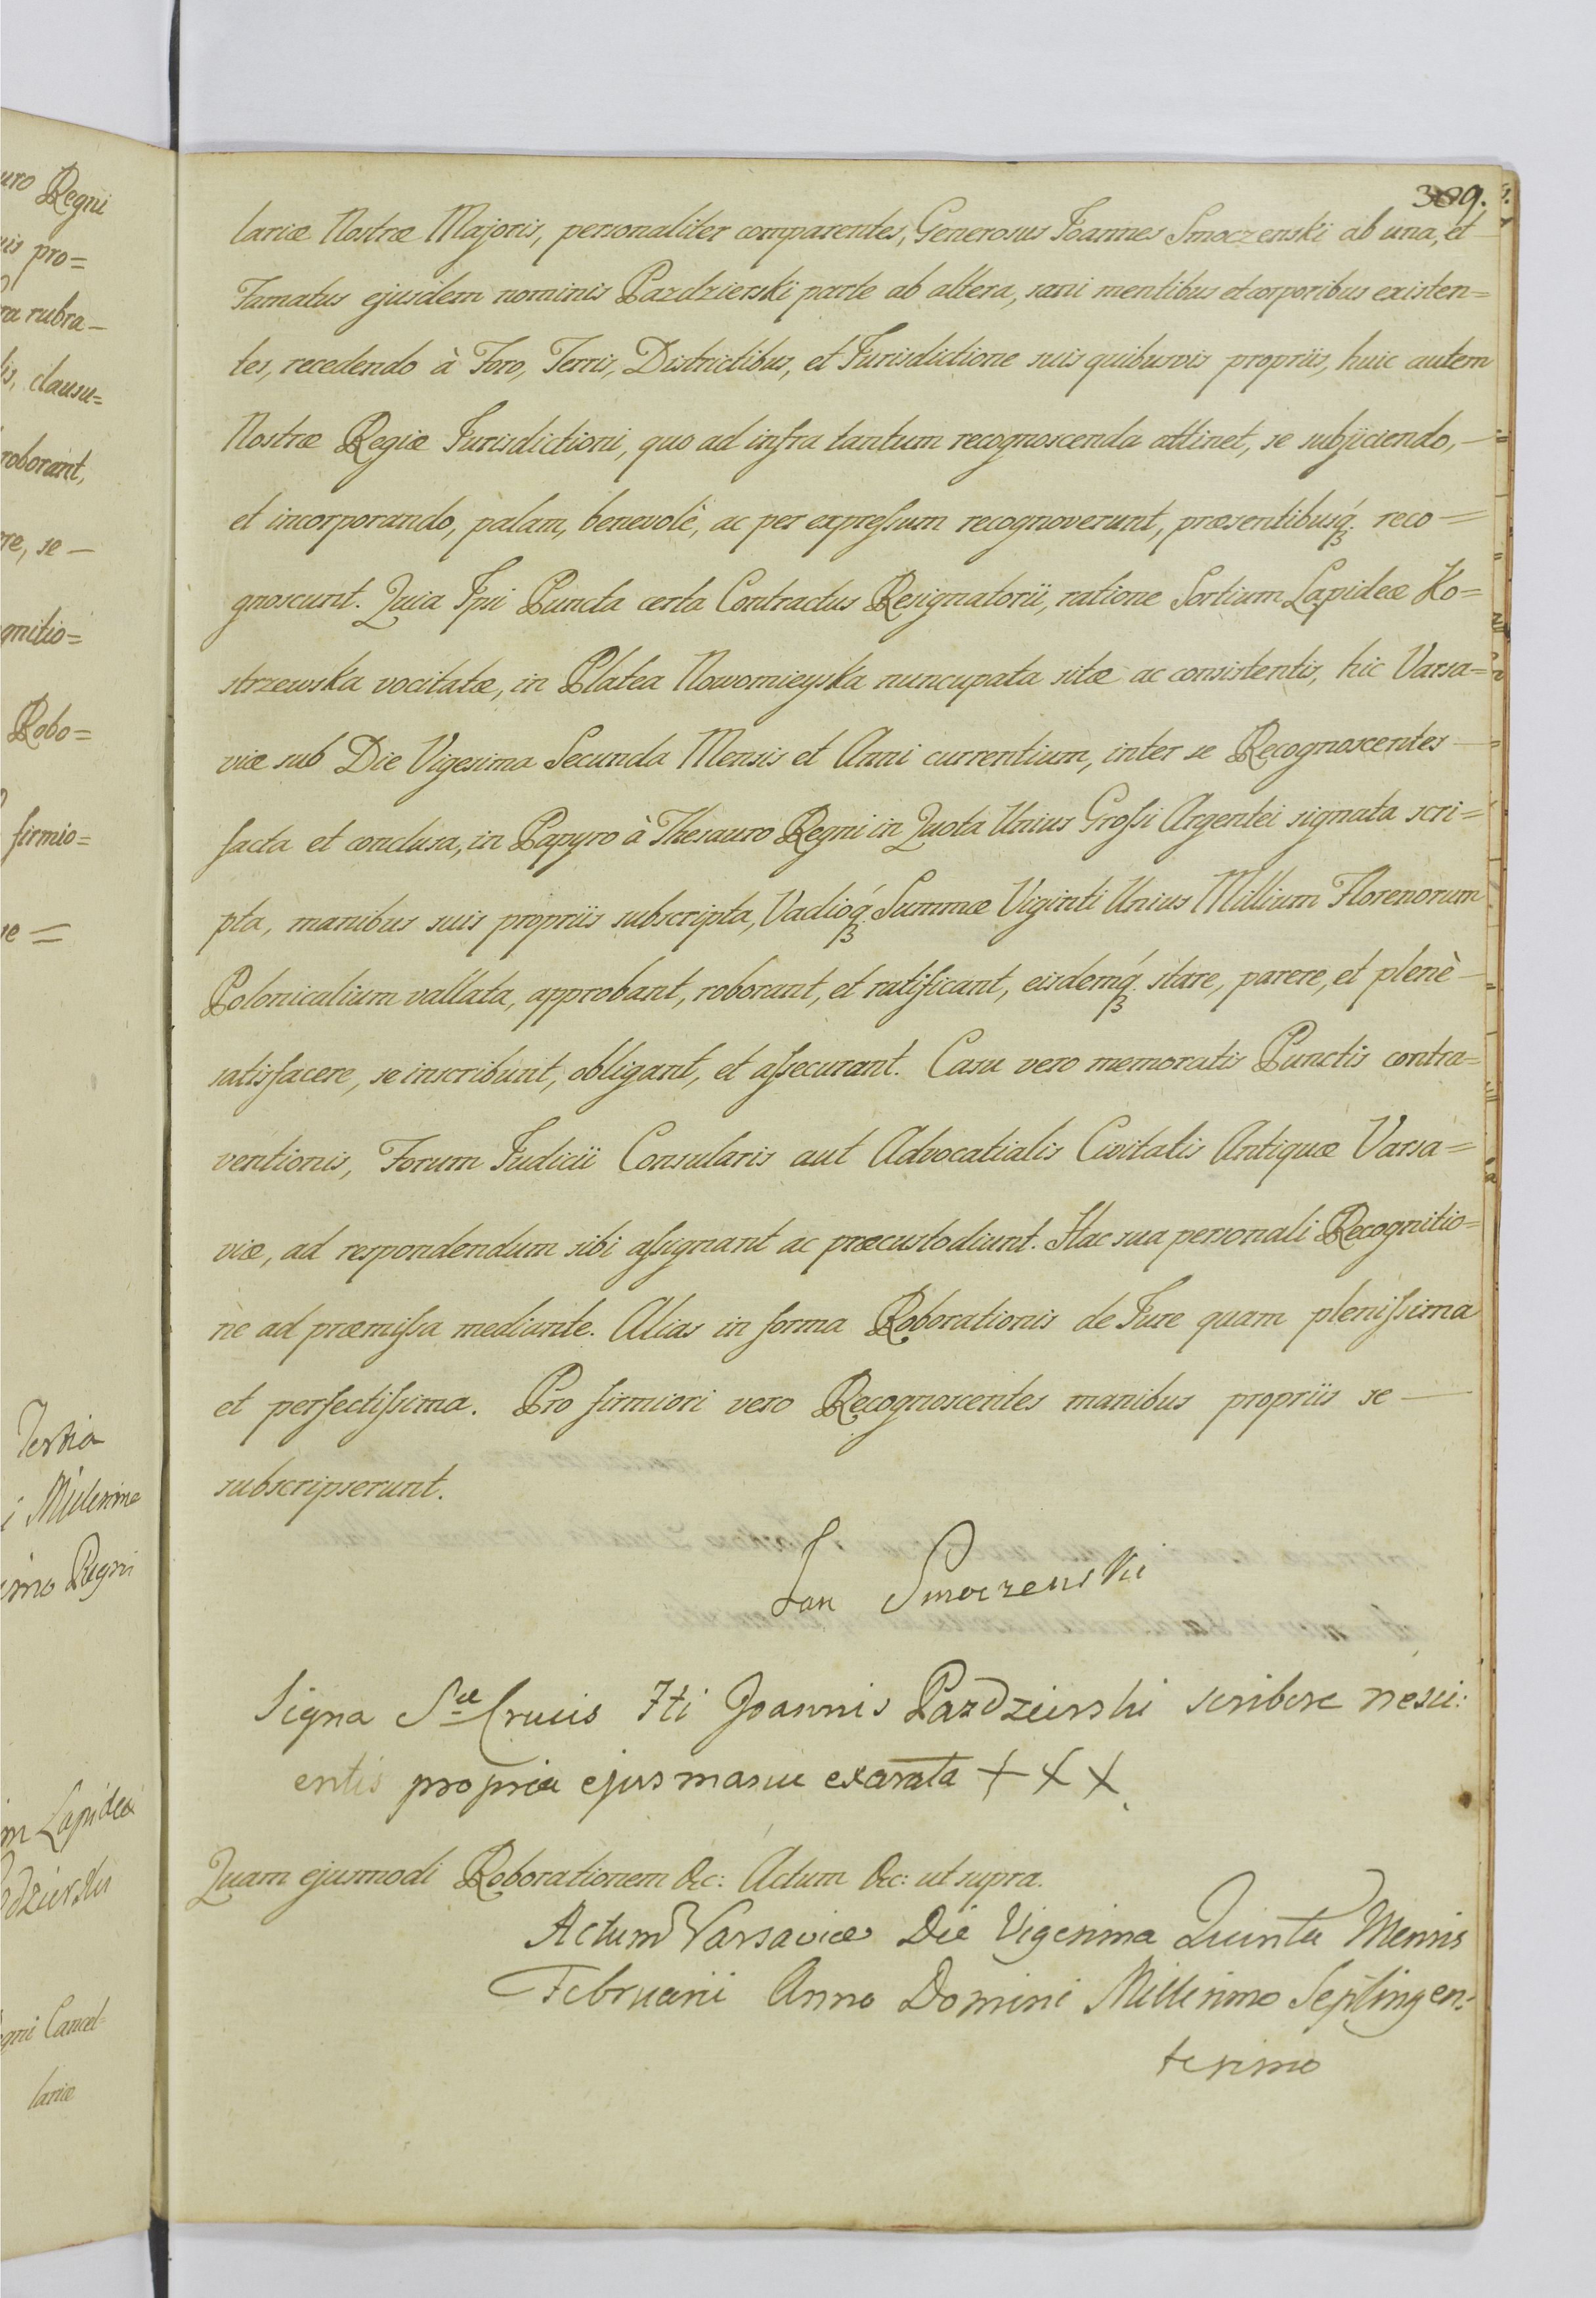 uro Regni
uis pro=
ra rubra—
lis, clausu=
roborant,
re, se—
gnitio=
Robo=
firmio=
ne=
Tertia
i Millesimo
simo Regni
m Lapideæ
dzierski
egni Cancel=
lariæ
309.
lariæ Nostræ Majoris, personaliter comparentes, Generosus Ioannes Smoczenski ab una, et
Famatus ejusdem nominis Pazdzierski parte ab altera, sani mentibus et corporibus existen=
tes, recedendo à Foro, Terris, Districtibus, et Iurisdictione suis quibusvis propriis, huic autem
Nostræ Regiæ Iurisdictioni, quo ad infra tantum recognoscenda attinet, se subjiciendo,—
et incorporando, palam, benevolè, ac per expreſsum recognoverunt, præsentibusq́ꝫ reco=
gnoscunt. Quia Ipsi Puncta certa Contractus Resignatorii, ratione Sortium Lapideæ Ko=
strzewska vocitatæ, in Platea Nowomieyska nuncupata sitæ ac consistentis, hic Varsa=
viæ sub Die Vigesima Secunda Mensis et Anni currentium, inter se Recognoscentes—
facta et conclusa, in Papyro à Thesauro Regni in Quota Unius Groſsi Argentei signata scri=
pta, manibus suis propriis subscripta, Vadioq́ꝫ Summæ Viginti Unius Millium Florenorum
Polonicalium vallata, approbant, roborant, et ratificant, eisdemq́ꝫ stare, parere, et plenè—
satisfacere, se inscribunt, obligant, et aſsecurant. Casu vero memoratis Punctis contra=
ventionis, Forum Iudicii Consularis aut Advocatialis Civitatis Antiquæ Varsa=
viæ, ad respondendum sibi aſsignant ac præcustodiunt. Hac sua personali Recognitio=
ne ad præmiſsa mediante. Alias in forma Roborationis de Iure quam pleniſsima
et perfectiſsima. Pro firmiori vero Recognoscentes manibus propriis se—
subscripserunt.
Jan Smoczenski
Signa Sæ Crucis Fti Joannis Pazdzierski scribere nesci:
entis propria ejus manu exarata + + +
Quam ejusmodi Roborationem &c: Actum &c: ut supra.
Actum Varsaviæ Die Vigesima Quinta Mensis
Februarii Anno Domini Millesimo Septingen:
tesimo